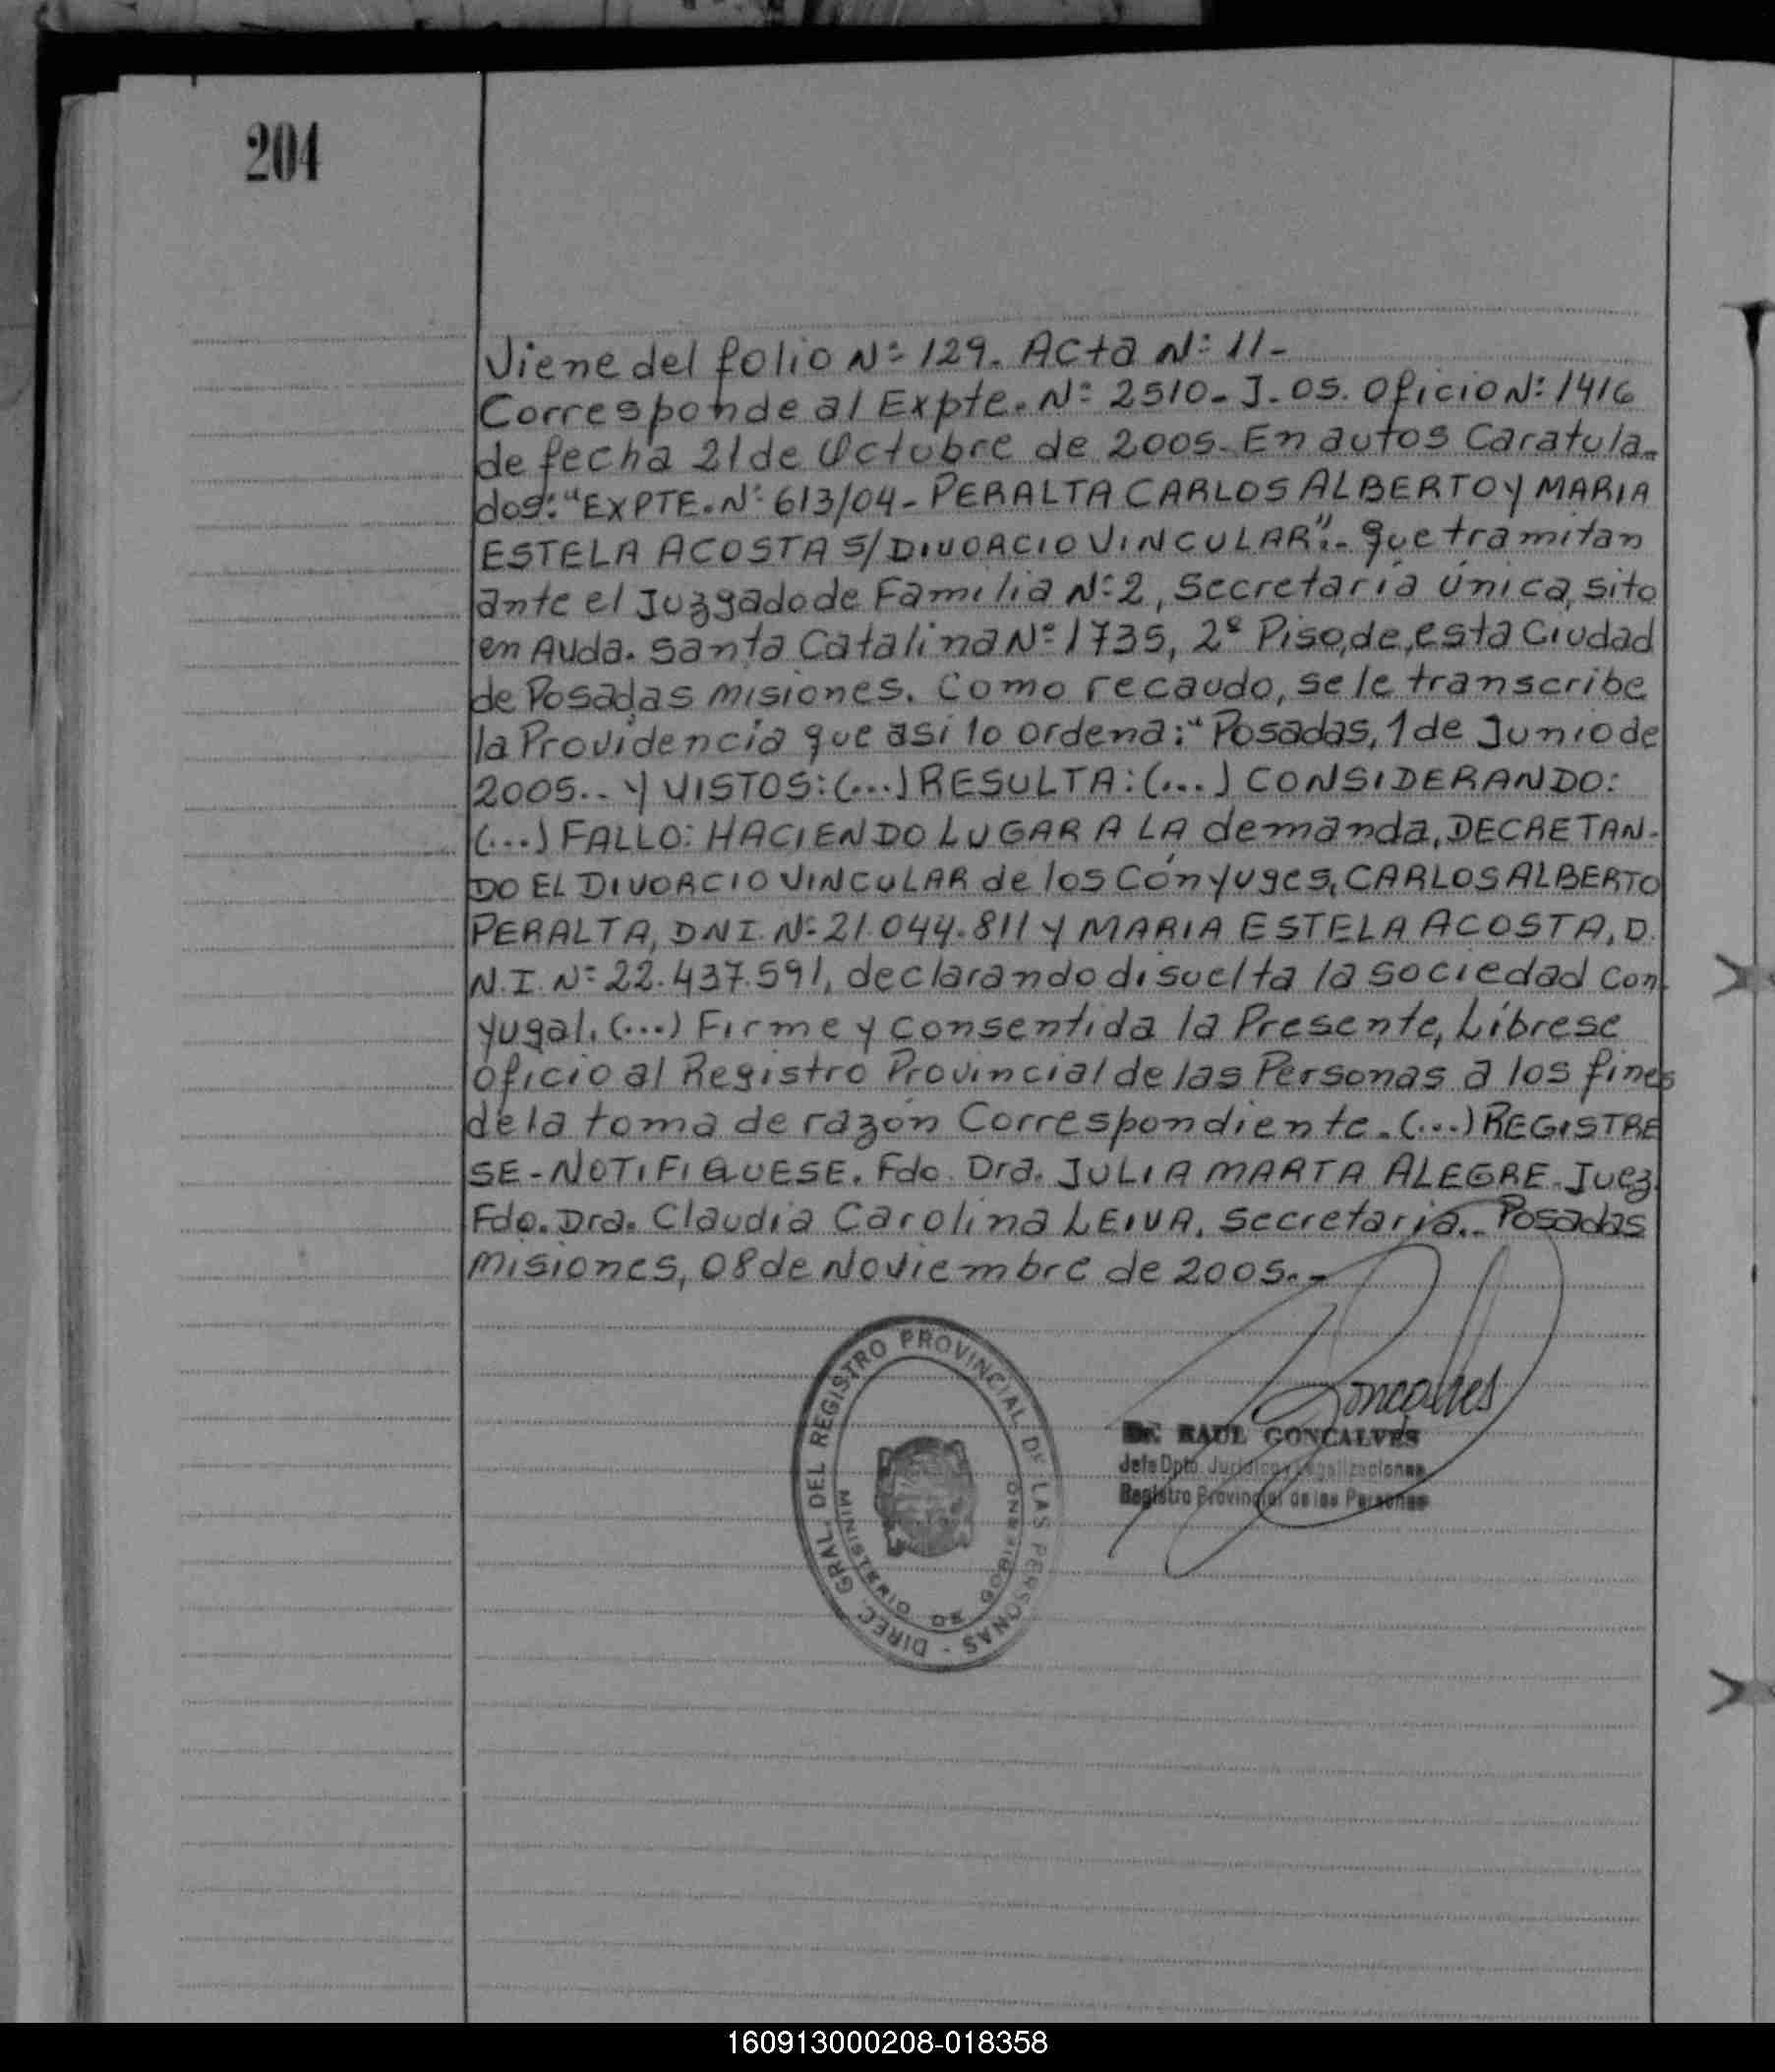 204
Viene del folio Nº 129. Acta Nº 11-
Corresponde al Expte. Nº 2510-J-05. Oficio Nº 1416
de fecha 21 de Octubre de 2005-En autos Caratula-
dos: "EXPTE. Nº 613/04- PERALTA CARLOS ALBERTO Y MARIA
ESTELA ACOSTA S/DIVORCIO VINCULAR".- que tramitan
ante el Juzgado de Familia Nº 2, Secretaría única, sito
en Avda. Santa Catalina Nº 1735, 2º Piso, de, esta Ciudad
de Posadas Misiones. Como recaudo, se le transcribe
la Providencia que asi lo ordena: "Posadas, 1 de Junio de
2005.- Y VISTOS: (...) RESULTA: (...) CONSIDERANDO:
(...) FALLO: HACIENDO LUGAR A LA demanda, DECRETAN-
DO EL DIVORCIO VINCULAR de los Cónyuges, CARLOS ALBERTO
PERALTA, DNI. Nº 21.044.811 Y MARIA ESTELA ACOSTA, D.
N.I. Nº 22.437.591, declarando disuelta la sociedad con-
yugal. (...) Firme y consentida la Presente, Líbrese
oficio al Registro Provincial de las Personas a los fines
de la toma de razón Correspondiente. (...) REGISTRE
SE-NOTIFIQUESE. Fdo. Dra. JULIA MARTA ALEGRE. Juez.
Fdo. Dra. Claudia Carolina LEIVA. Secretaria.- Posadas
Misiones, 08 de Noviembre de 2005.-
DIREC. GRAL. DEL REGISTRO PROVINCIAL DE LAS PERSONAS -
MINISTERIO DE GOBIERNO
Goncalves
Dr. RAUL GONCALVES
Jefe Dpto. Jurídico y Legalizaciones
Registro Provincial de las Personas
160913000208-018358